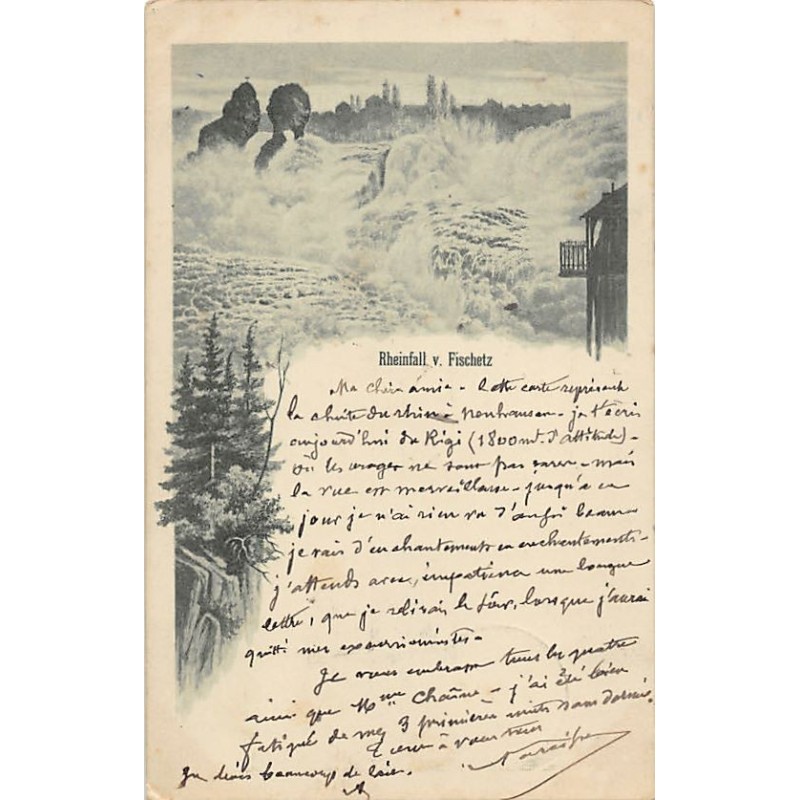 Rheinfall v. Fischetz
Ma chère amie - Cette carte représente
la chute du rhin à neuhausen - je t'écris
aujourd'hui du Rigi (1800 m. d'altitude) -
où les orages ne sont pas rares - mais
la vue est merveilleuse - jusqu'à ce
jour je n'ai rien vu d'aussi beau -
je vais d'enchantements en enchantements -
j'attends avec impatience une longue
lettre, que je relirais le soir, lorsque j'aurai
quitté mes excursionnistes -
Je vous embrasse tous les quatre
ainsi que Mme - j'ai été bien
fatiguée de mes 3 premières nuits sans dormir.
à vous tous
Je bois beaucoup de